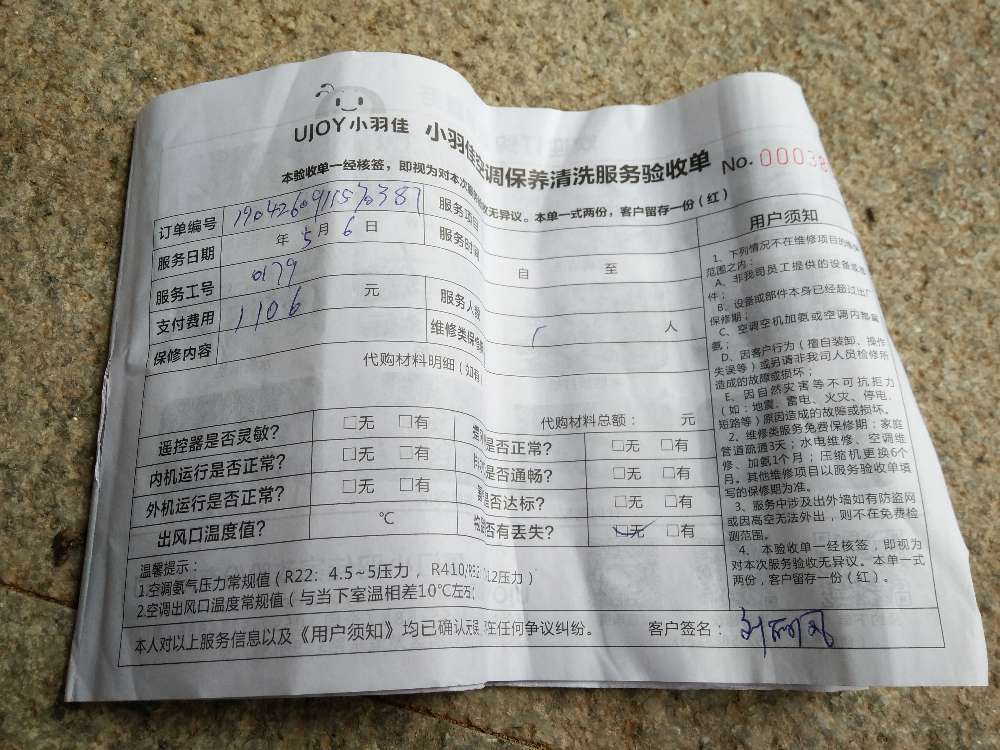 UJOY小羽佳 小羽佳空调保养清洗服务验收单 No.00038
本验收单一经核签，即视为对本次服务验收无异议。本单一式两份，客户留存一份（红）
订单编号 服务项目
服务日期 年 5 月 6 日 服务时间 自 至
服务工号 0179 服务人数 人
支付费用 1106 元 维修类保修
保修内容
代购材料明细（如有
代购材料总额： 元
遥控器是否灵敏？ □无 □有 是否正常？ □无 □有
内机运行是否正常？ □无 □有 是否通畅？ □无 □有
外机运行是否正常？ □无 □有 是否达标？ □无 □有
出风口温度值？ ℃ 否有丢失？ ☑无 □有
温馨提示：
1.空调氨气压力常规值（R22：4.5~5压力，R410/R32 12压力）
2.空调出风口温度常规值（与当下室温相差10℃左右
本人对以上服务信息以及《用户须知》均已确认无误 在任何争议纠纷。 客户签名：
用户须知
1、下列情况不在维修项目的
范围之内：
A、非我司员工提供的设备或
件；
B、设备或部件本身已经超过出厂
保修期；
C、空调空机加氨或空调内部漏
氨；
D、因客户行为（擅自装卸、操作
失误等）或另请非我司人员检修所
造成的故障或损坏；
E、因自然灾害等不可抗拒力
（如：地震、雷电、火灾、停电、
短路等）原因造成的故障或损坏。
2、维修类服务免费保修期：家庭
管道疏通3天；水电维修、空调维
修、加氨1个月；压缩机更换6个
月。其他维修项目以服务验收单填
写的保修期为准。
3、服务中涉及出外墙如有防盗网
或因高空无法外出，则不在免费检
测范围。
4、本验收单一经核签，即视为
对本次服务验收无异议。本单一式
两份，客户留存一份（红）。